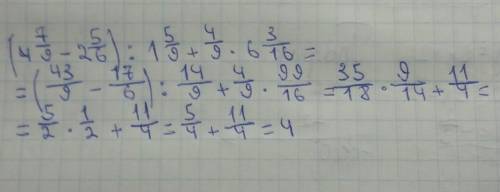 (4 7/9 - 2 5/6) : 1 5/9 + 4/9 · 6 3/16 =
= (43/9 - 17/6) : 14/9 + 4/9 · 99/16 = 35/18 · 9/14 + 11/4 =
= 5/2 · 1/2 + 11/4 = 5/4 + 11/4 = 4